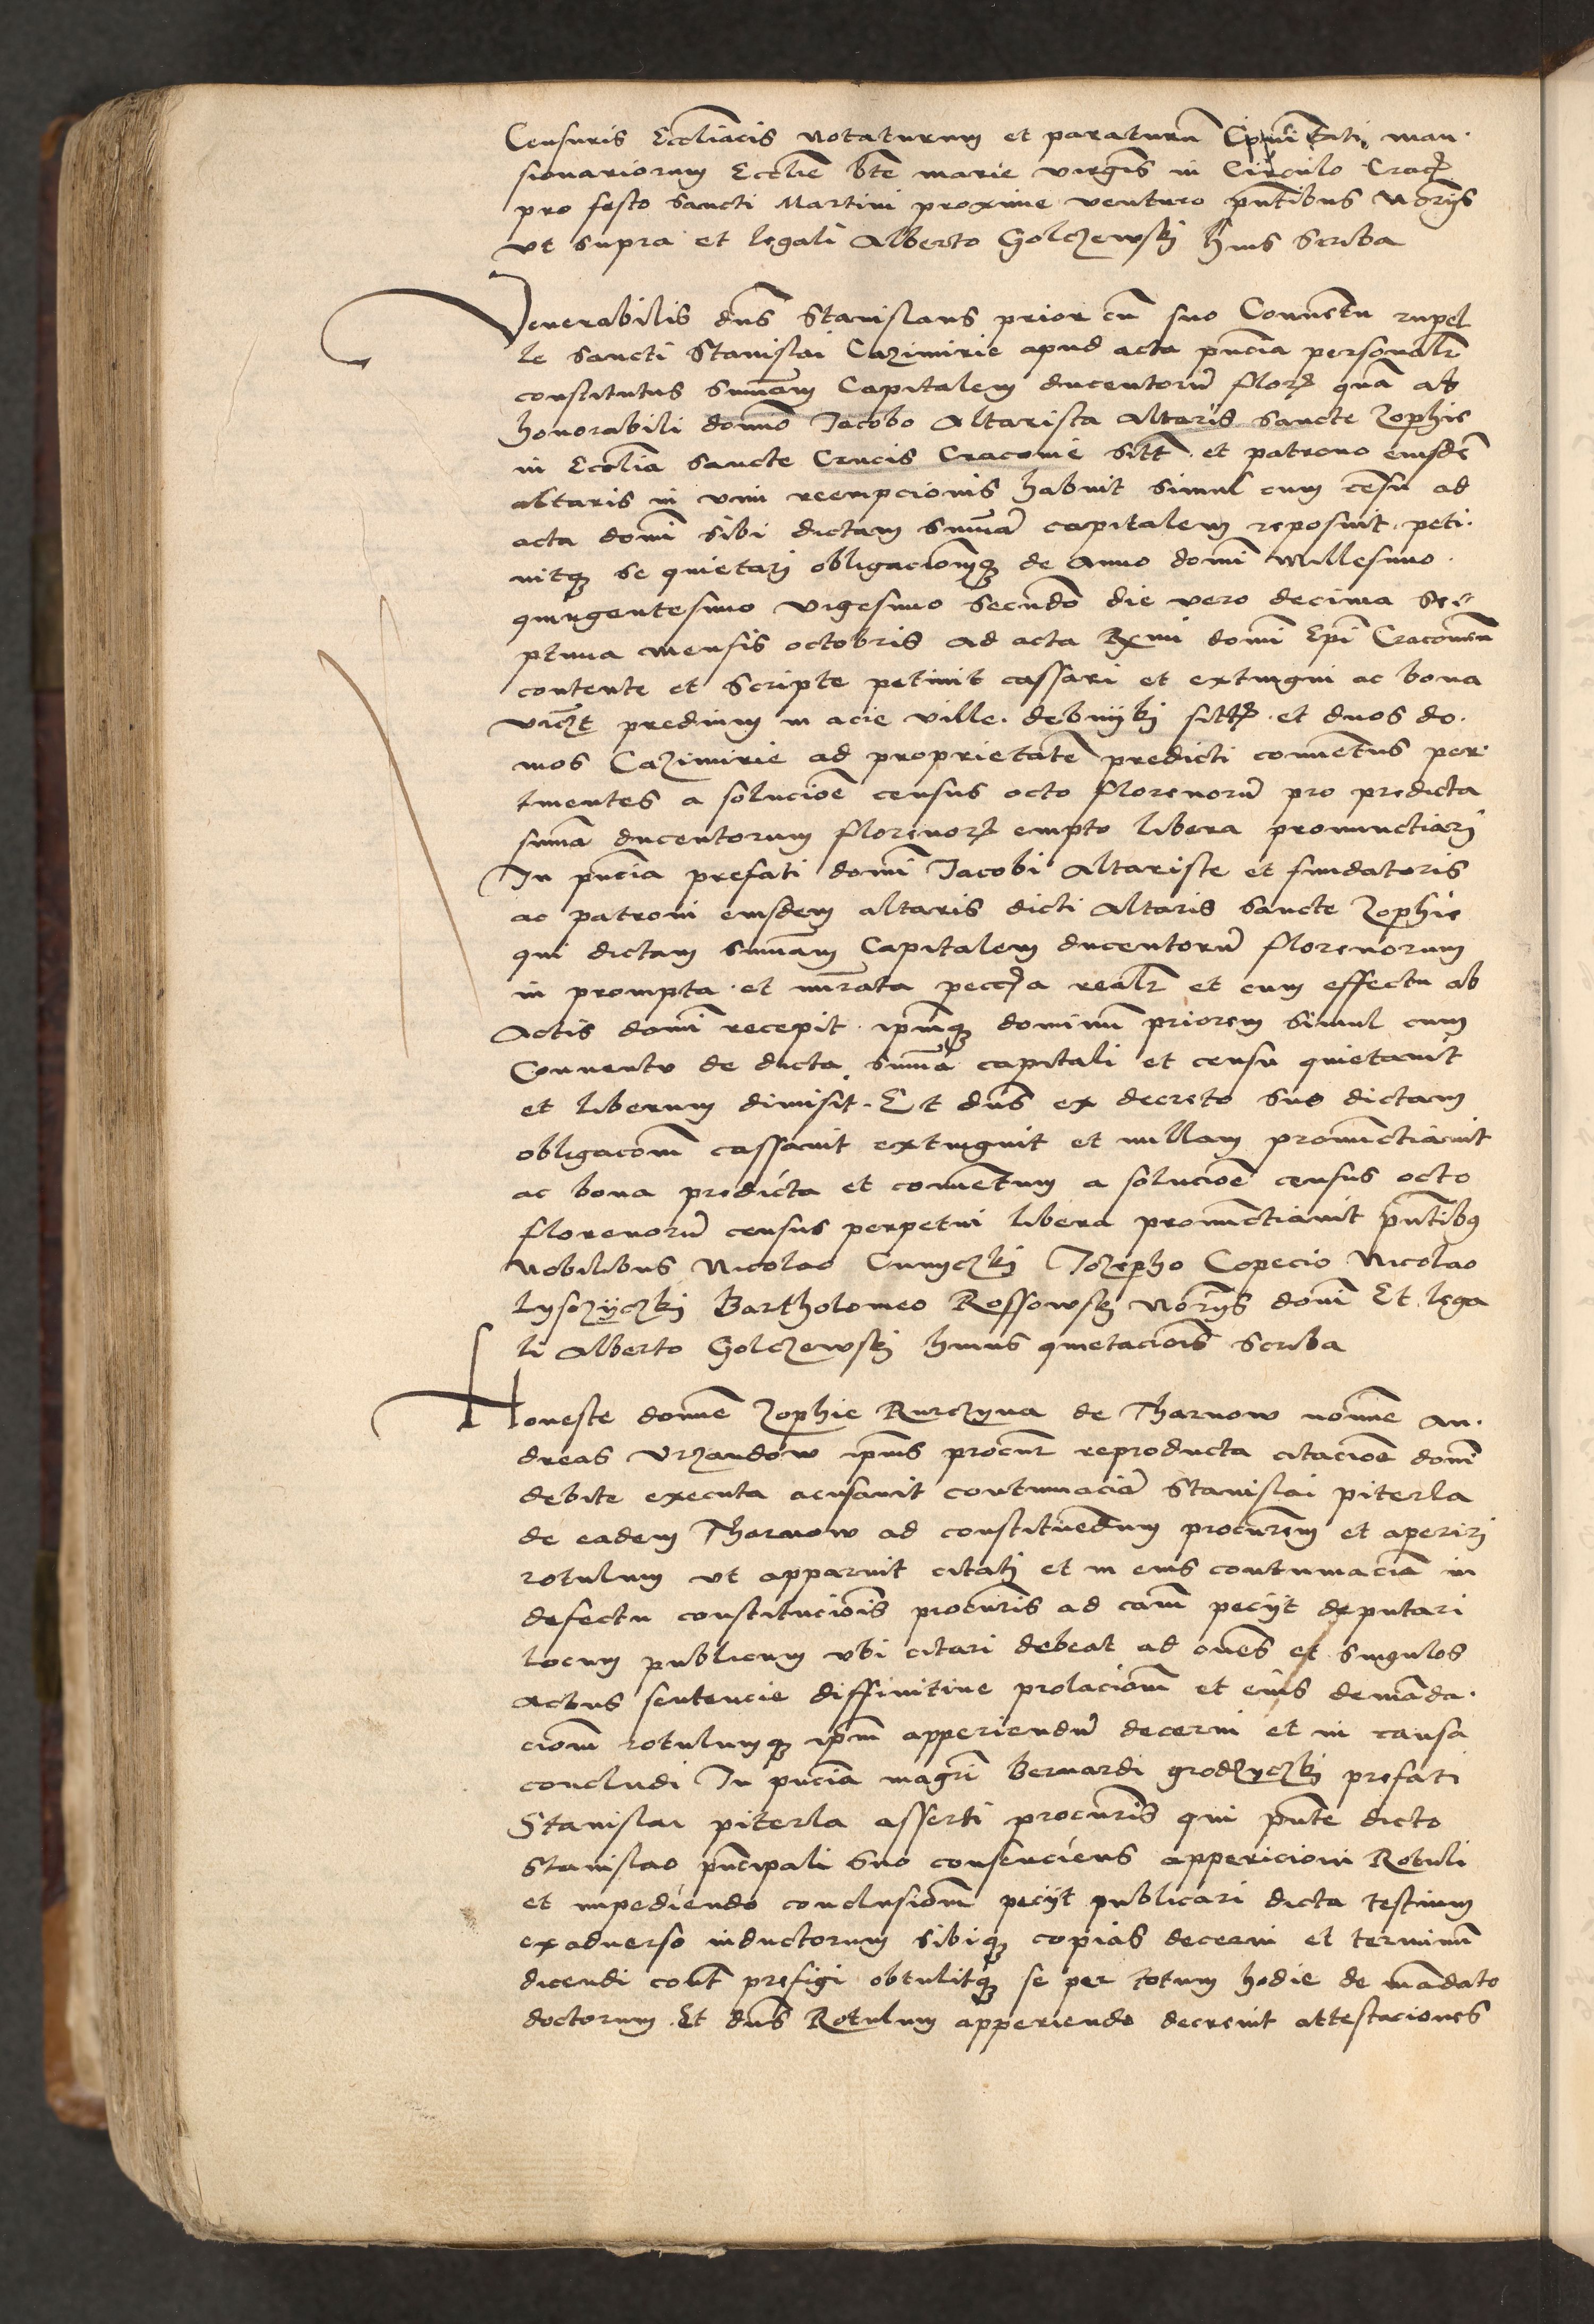 Censuris Eccliacis notaturum et paraturũ Cõmũitati man·
sionariorum Ecclie bte marie virgĩs in Circulo Crac
pro festo sancti Martini proxime venturo pñtibus Norijs
vt supra et legali Alberto Golczewskj huius scriba
Venerabilis dñs Stanislaus prior cũ suo Conuentu rupel
le sancti Stanislai Cazimirie apud acta pñcia personalr
constitutus summam Capitalem ducentorũ flor quã ab
honorabili domino Jacobo Altarista Altaris sancte Zophie
in Ecclia sancte Crucis Cracovie sitt et patrono eiusdẽ
altaris in vim reempcionis habuit simul cum cẽsu ad
acta domi sibi dictam summã capitalem reposuit peti·
uitq se quietarj obligacionẽq de Anno domi Millesimo·
quingentesimo vigesimo secundo die vero decima se
ptima mensis octobris ad acta Rxmi domi Epi Cracouien
contente et scripte petiuit cassari et extingui ac bona
viczt predium in acie ville debnijkj sitt et duos do·
mos Cazimirie ad proprietatẽ predicti conuẽtus per·
tinentes a solucioẽ census octo florenorũ pro predicta
suma ducentorum florenor empto libera pronunctiarj
In pñcia prefati domi Jacobi Altariste et fundatoris
ac patroni eiusdem altaris dicti Altaris sancte Zophie
qui dictam summam Capitalem ducentorũ florenorum
in prompta et nũrata peccia realr et cum effectu ab
Actis domi recepit ipmq dominũ priorem simul cum
Conuentu de dicta summa capitali et censu quietauit
et liberum dimisit. Et dñs ex decreto suo dictam
obligacom cassauit extinguit et nullam pronunctiauit
ac bona predicta et conuentum a solucioẽ census octo
florenorũ census perpetui libera pronunctiauit pñtibq
Nobilibus Nicolao Cunyczkj Jozepho Copecio Nicolao
Lyssczyczkj Bartholomeo Rossowskj Norijs domi Et lega
li Alberto Golczewskj huius quietaciõis scriba
Honeste domine Zophie Kurczyna de Tharnow nomine An·
dreas Vrzandow ipius procur reproducta citacioẽ domi
debite executa acusauit contumaciã Stanislai piterla
de eadem Tharnow ad constituendum procurem et aperirj
rotulum vt apparuit citatj et in eius contumaciã in
defectu constituciõis procuris ad cam pecijt deputari
locum publicum vbi citari debeat ad oms et singulos
Actus sentencie diffinitiue prolaciom et eius demãda·
ciom rotulumq ipm apperiendũ decerni et in causa
concludi In pñcia magri Bernardi grodzyczkj prefati
Stanislai piterla asserti procuris qui pñte dicto
Stanislao principali suo consenciens appericioni Rotuli
et impediendo conclusiom pecijt publicari dicta testium
ex aduerso inductorum sibiq copias decerni et terminũ
dicendi cont prefigi obtulitq se per totum hodie de mãdato
doctorum. Et dñs Rotulum apperiendo decreuit attestaciones